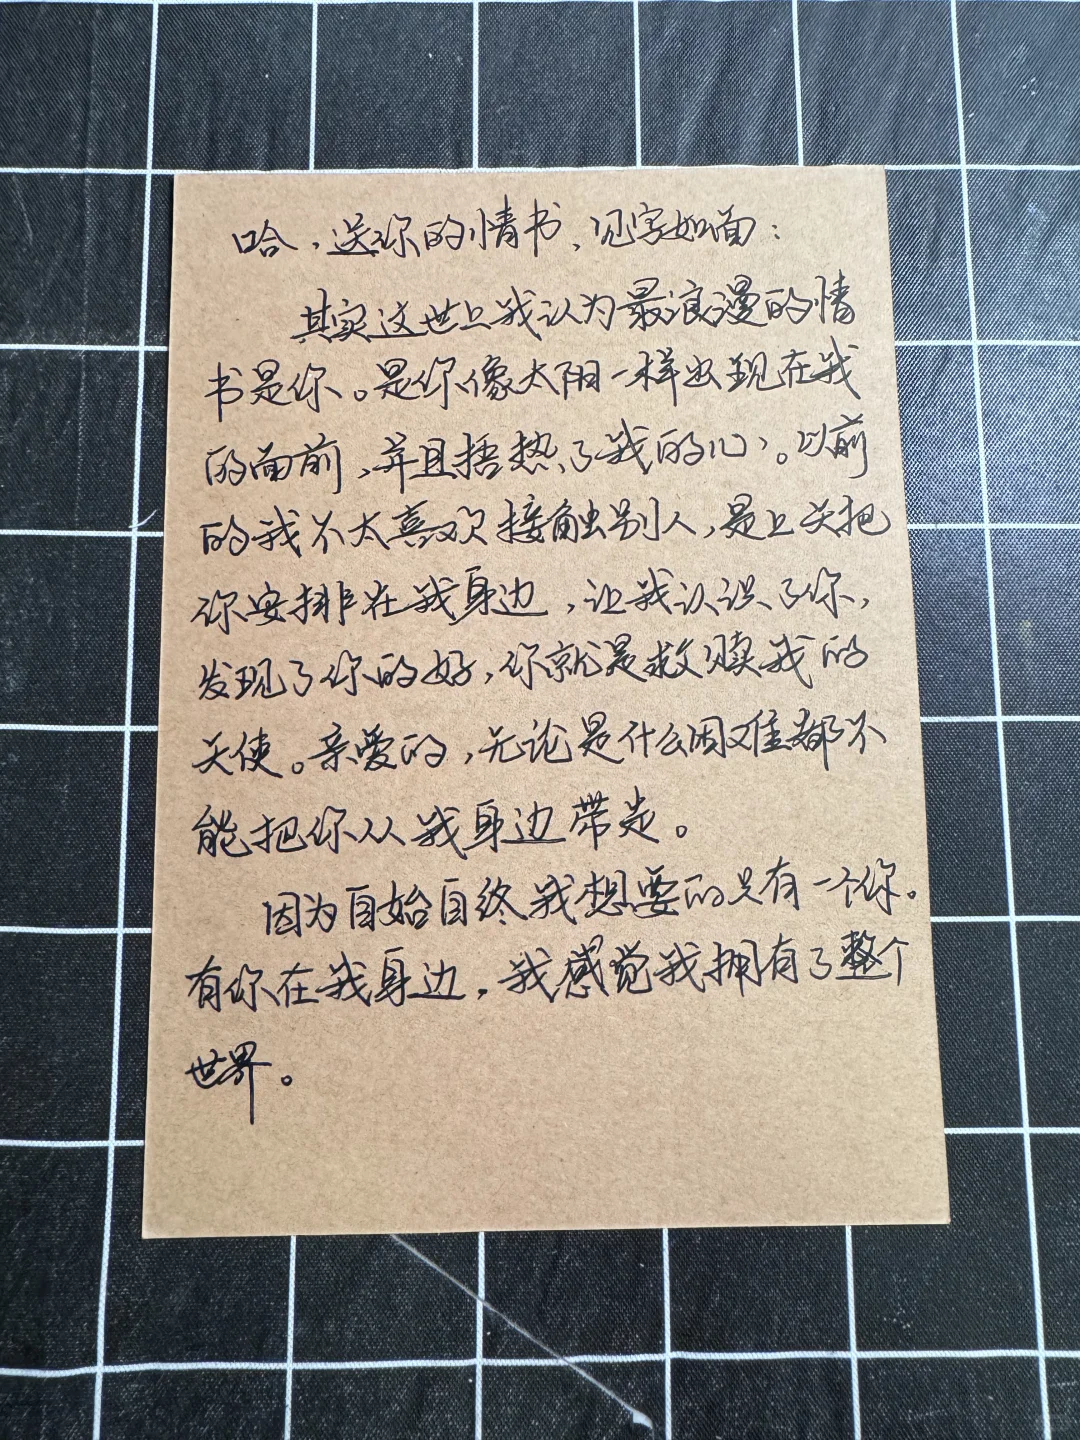 哈，送你的情书、见字如面：
其实这世上我认为最浪漫的情
书是你。是你像太阳一样出现在我
的面前，并且捂热了我的心。以前
的我不太喜欢接触别人，是上天把
你安排在我身边，让我认识了你，
发现了你的好，你就是救赎我的
天使。亲爱的，无论是什么困难都不
能把你从我身边带走。
因为自始自终我想要的只有一个你。
有你在我身边，我感觉我拥有了整个
世界。